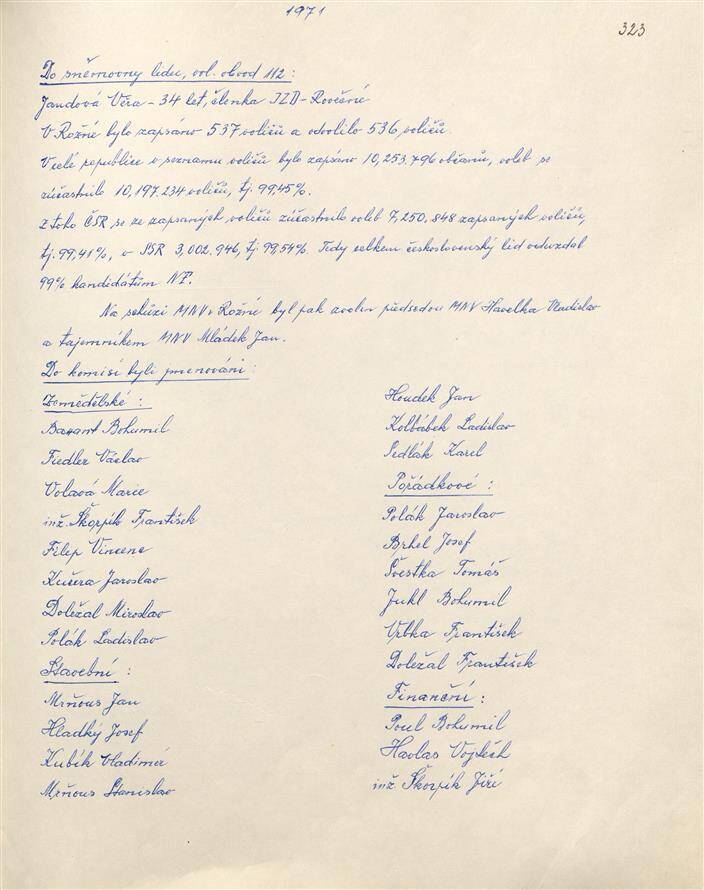 1971
323
Do sněmovny lidu, vol. obvod 112:
Jandová Věra - 34 let, členka JZD - Rovečné
V Rožné bylo zapsáno 537 voličů a odvolilo 536 voličů.
V celé republice v seznamu voličů bylo zapsáno 10,253.796 občanů, voleb se
zúčastnilo 10,197.234 voličů, tj. 99,45%.
Z toho ČSR se ze zapsaných voličů zúčastnilo voleb 7,250.848 zapsaných voličů,
tj. 99,41%, v SSR 3,002.946, tj. 99,54%. Tedy celkem československý lid odevzdal
99% kandidátům NF.
Na schůzi MNV v Rožné byl pak zvolen předsedou MNV Havelka Vladislav
a tajemníkem MNV Mládek Jan.
Do komisí byli jmenováni:
Zemědělské:
Bazant Bohumil
Fiedler Václav
Volavá Marie
inž. Škorpík František
Filip Vincenc
Kučera Jaroslav
Doležal Miroslav
Polák Ladislav
Stavební:
Mrňous Jan
Hladký Josef
Kubík Vladimír
Mrňous Stanislav
Houdek Jan
Kolbábek Ladislav
Sedlák Karel
Pořádkové:
Polák Jaroslav
Brhel Josef
Švestka Tomáš
Juhl Bohumil
Vrbka František
Doležal František
Finanční:
Poul Bohumil
Havlas Vojtěch
inž. Škorpík Jiří